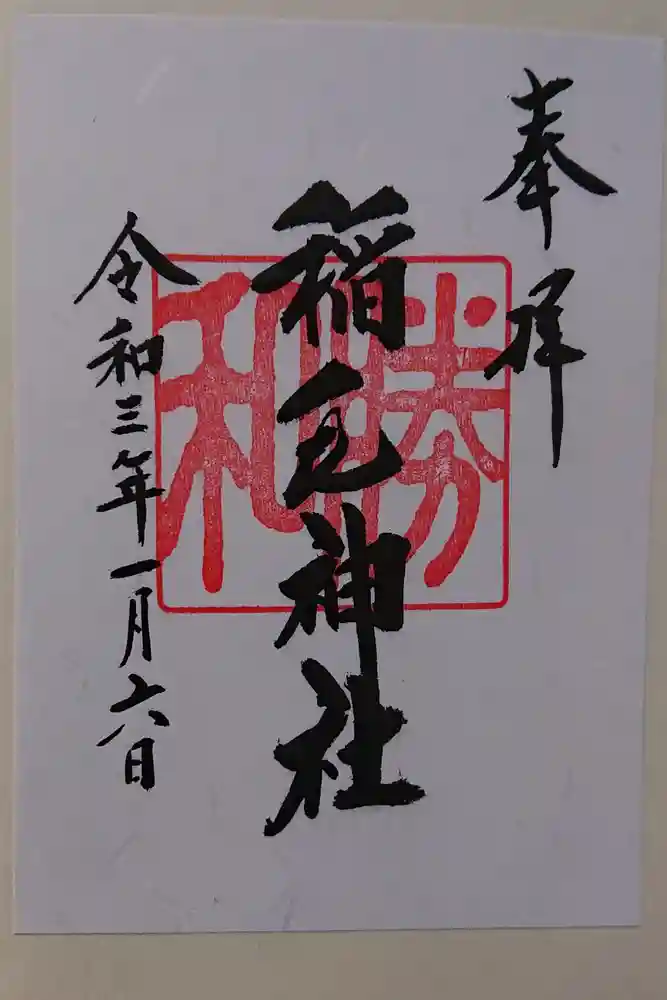 奉拝
稲毛神社
勝和
令和三年一月六日